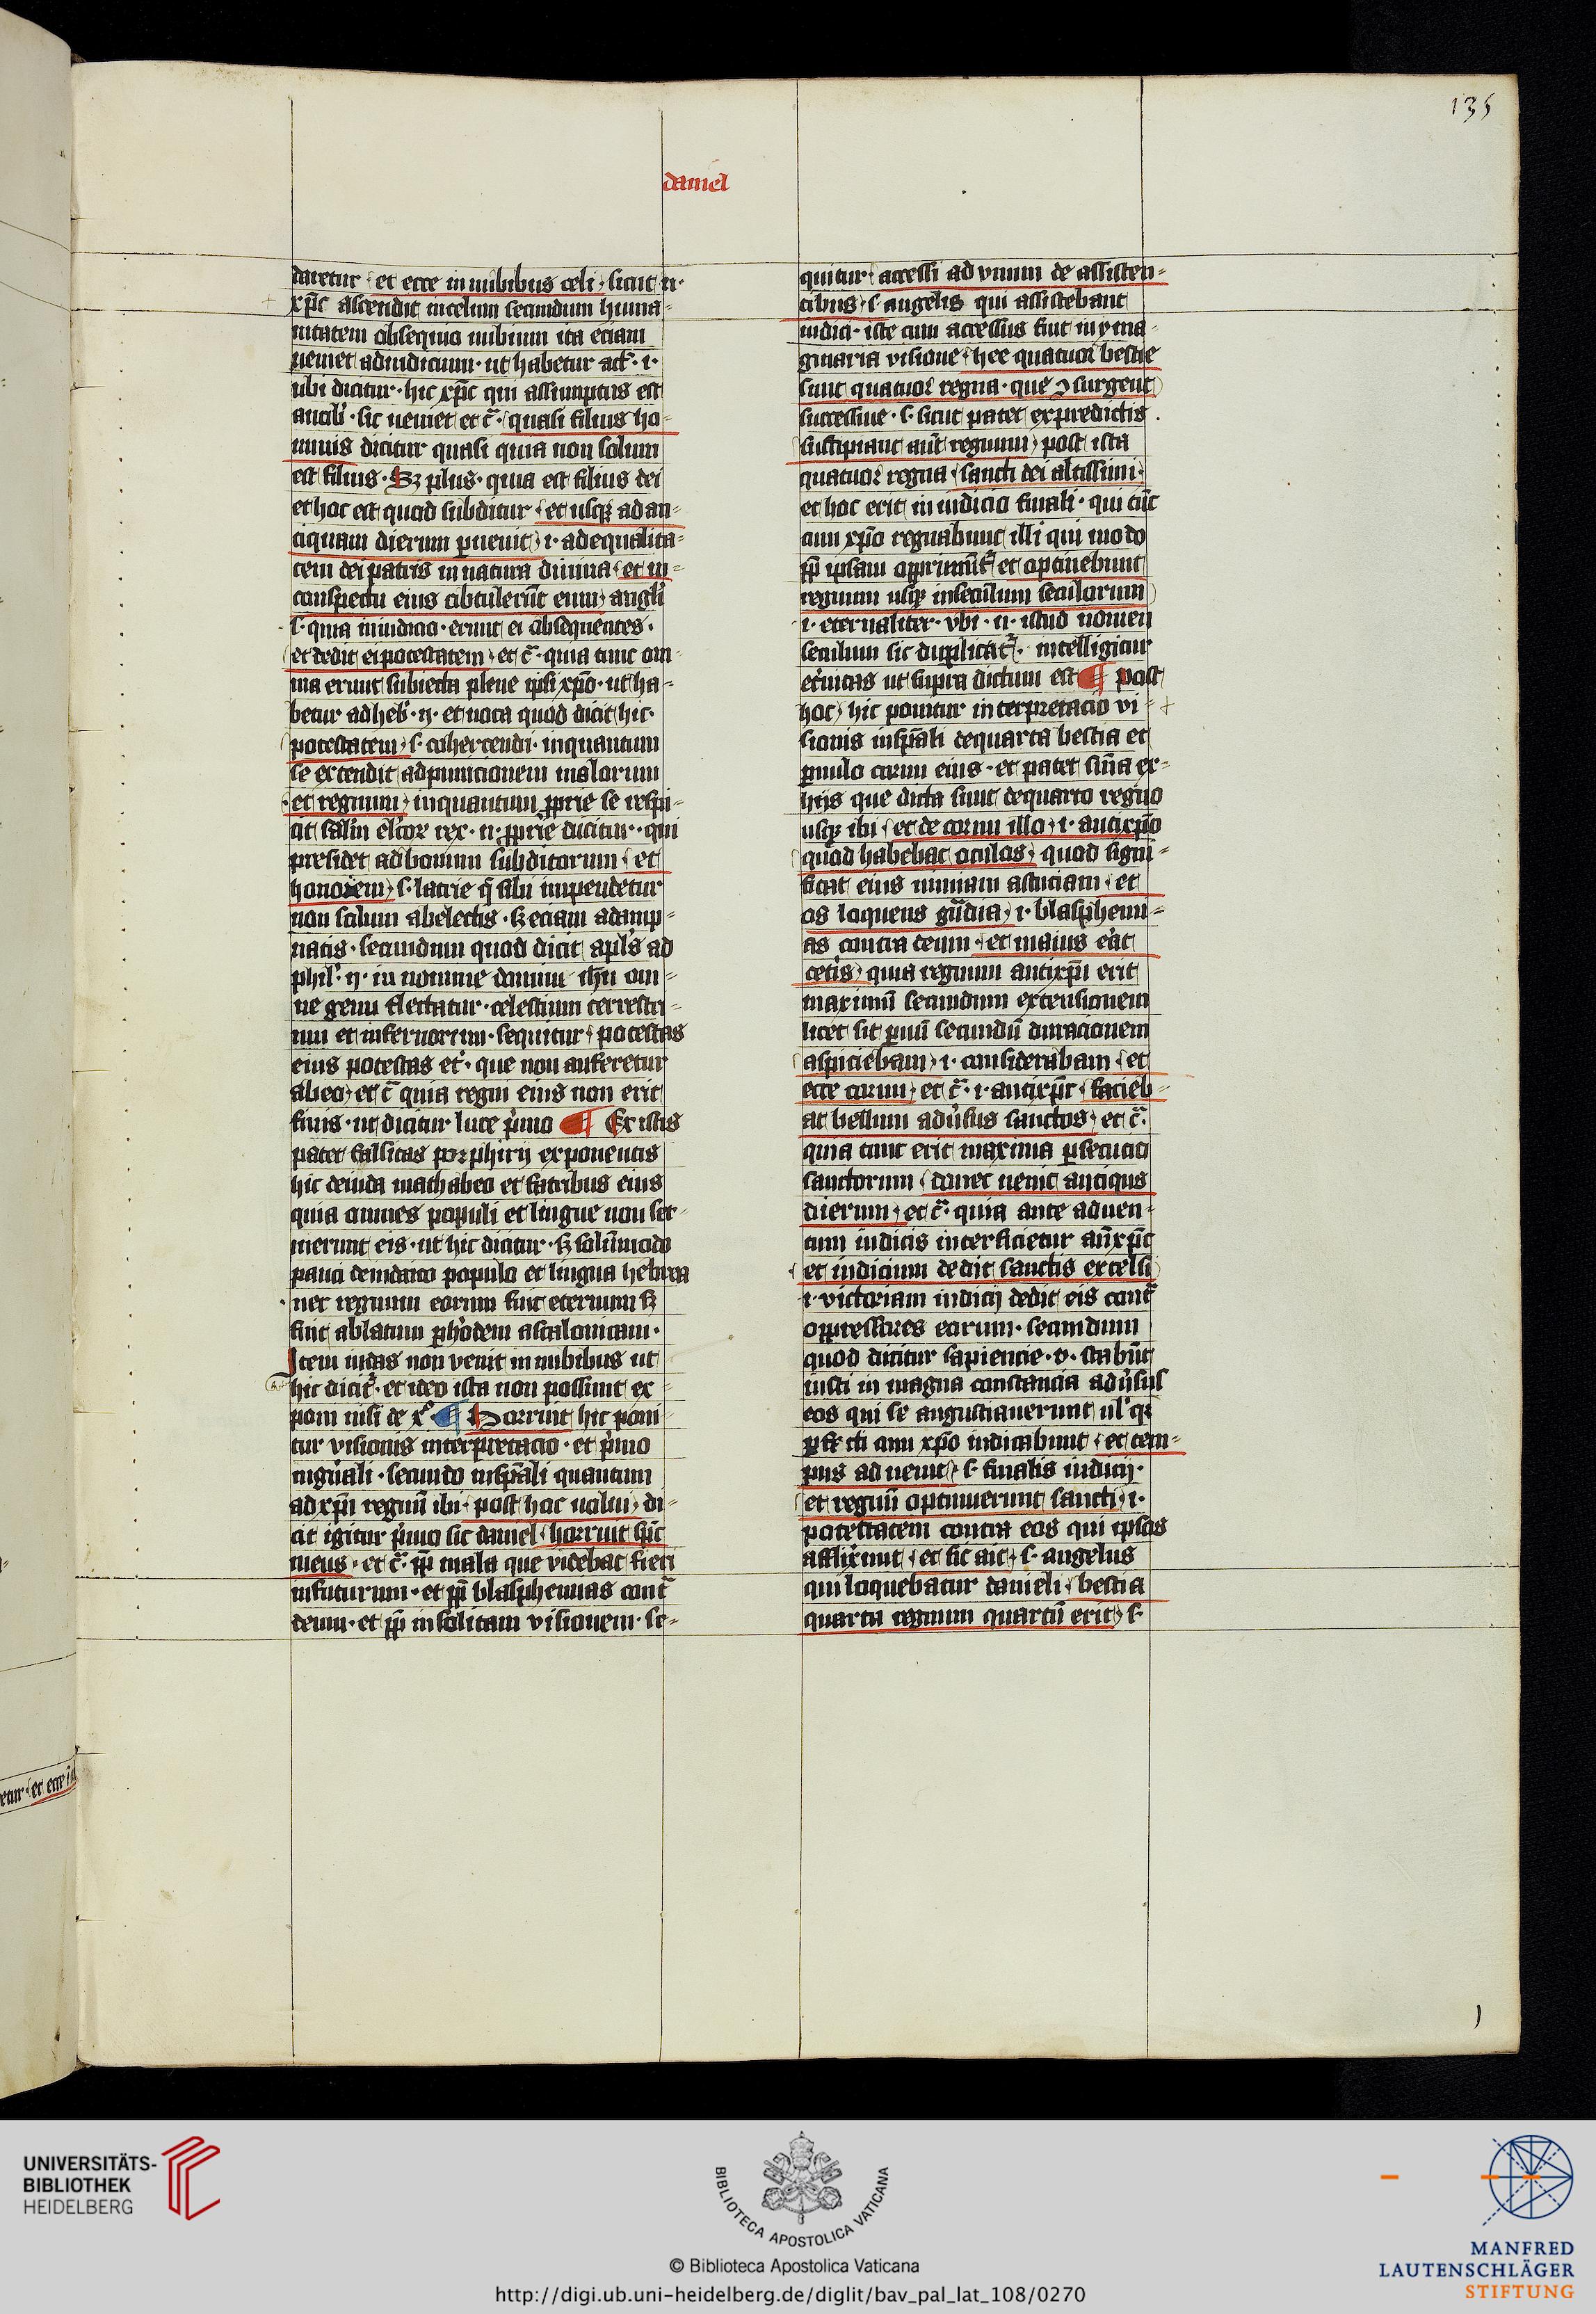 135
daniel
daretur et ecce in nubibus celi sicut n·
xp̄c ascendit in celum secundum huma-
nitatem obsequio nubium ita eciam
ueniet ad iudicium· ut habetur act᷒· i·
ubi dicitur· hic xp̄c qui assumptus est
a uob᷒· sic ueniet et c̄· quasi filius ho-
minis dicitur quasi quia non solum
est filius· Sꝫ plus· quia est filius dei
et hoc est quod subditur et usqꝫ ad an-
tiquum dierum ꝑuenit i· ad equalita-
tem dei patris in natura diuina et in
conspectu eius obtulerūt eum angli
s· quia in iudicio· erunt ei obsequentes·
et dedit ei potestatem et c̄· quia tunc om-
nia erunt subiecta plene ipsi xp̄o· ut ha-
betur ad heb᷒· ij· et nota quod dicit hic·
potestatem s· cohercendi· inquantum
se extendit ad punicionem malorum
et regnum inquantum ꝓprie se respi-
cit salūt elc̄or rex· n· ꝓprie dicitur· qui
presidet ad bonum subditorum et
honorem s· latrie q̄ sibi impendetur
non solum ab electis· sꝫ eciam a damp-
natis· secundum quod dicit apl's ad
phil᷒· ij· in nomine domini ih̄u om-
ne genu flectatur· celestium terrestri-
um et infernorum· sequitur potestas
eius potestas et᷒· que non auferetur
ab eo et c̄ quia regni eius non erit
finis· ut dicitur luce p̄mo ¶ Ex istis
patet falsitas porphirij exponentis
hic de iuda machabeo et fratribus eius
quia omnes populi et lingue non ser-
uierunt eis· ut hic dicitur· sꝫ solūmodo
pauci de iudaico populo et lingua hebrea
nec regnum eorum fuit eternum sꝫ
fuit ablatum ꝑ h'odem ascalonitam·
Item iudas non venit in nubibus ut
hic dicit᷒· et ideo ista non possunt ex-
poni nisi de x᷒· ¶ Horruit hic poni-
tur visionis interpretacio· et p̄mo
in gn̄ali· secundo in sp̄ali quantum
ad xp̄i regnū ibi post hoc uolui di-
cit igitur p̄mo sic daniel horruit sp̄c
meus· et c̄· ꝓp̄ mala que videbat fieri
in futurum· et ꝓp̄ blasphemias cont᷒
deum· et ꝓp̄ insolitam visionem· se-
quitur accessi ad vnum de assisten-
tibus s· angelis qui assistebant
iudici· iste cum accessus fuit in yma-
ginaria visione hee quatuor bestie
sunt quatuor regna· que ꝯsurgent
successiue· s· sicut patet ex predictis·
suscipiant aūt regnum post ista
quatuor regna sancti dei altissimi·
et hoc erit in iudicio finali· qui tūc
cum xp̄o regnabunt illi qui modo
ꝓp̄ ipsam opprimūt᷒ et optinebunt
regnum usqꝫ in seculum seculorum
i· eternaliter· vbi· n· istud nomen
seculum sic duplicat᷒· intelligitur
et᷒nitas ut supra dictum est ¶ post
hoc hic ponitur interpretacio vi-
sionis in sp̄ali de quarta bestia et
ꝑuulo cornu eius· et patet sn̄ia ex
hijs que dicta sunt de quarto regno
usqꝫ ibi et de cornu illo i· antixp̄o
quod habebat oculos quod signi-
ficat eius nimiam astuciam et
os loquens gn̄dia i· blasphemi-
as contra deum· et maius e᷒at
cet᷒is quia regnum antixp̄i erit
maximū secundum extensionem
licet sit ꝑuū secundū duracionem
aspiciebam i· considerabam et
ecce cornu et c̄· i· antixp̄c facieb-
at bellum adu᷒sus sanctos et c̄·
quia tunc erit maxima ꝑsecucio
sanctorum donec uenit antiqus
dierum et c̄· quia ante aduen-
tum iudicis interficietur an̄xp̄c
et iudicium dedit sanctis excelsi
i· victoriam iudicij dedit eis cont᷒
oppressores eorum· secundum
quod dicitur sapiencie· v· stabūt
iusti in magna constancia adu᷒sus
eos qui se angustiauerunt ul' qr
cum xp̄o iudicabunt et tem-
pus aduenit s· finalis iudicij·
et regnū optinuerunt sancti i·
potestatem contra eos qui ipsos
afflixerunt et sic ait s· angelus
qui loquebatur danieli bestia
quarta regnum quartū erit s·
etur et ecce i
UNIVERSITÄTS-
BIBLIOTHEK
HEIDELBERG
BIBLIOTECA APOSTOLICA VATICANA
© Biblioteca Apostolica Vaticana
http://digi.ub.uni-heidelberg.de/diglit/bav_pal_lat_108/0270
MANFRED
LAUTENSCHLÄGER
STIFTUNG